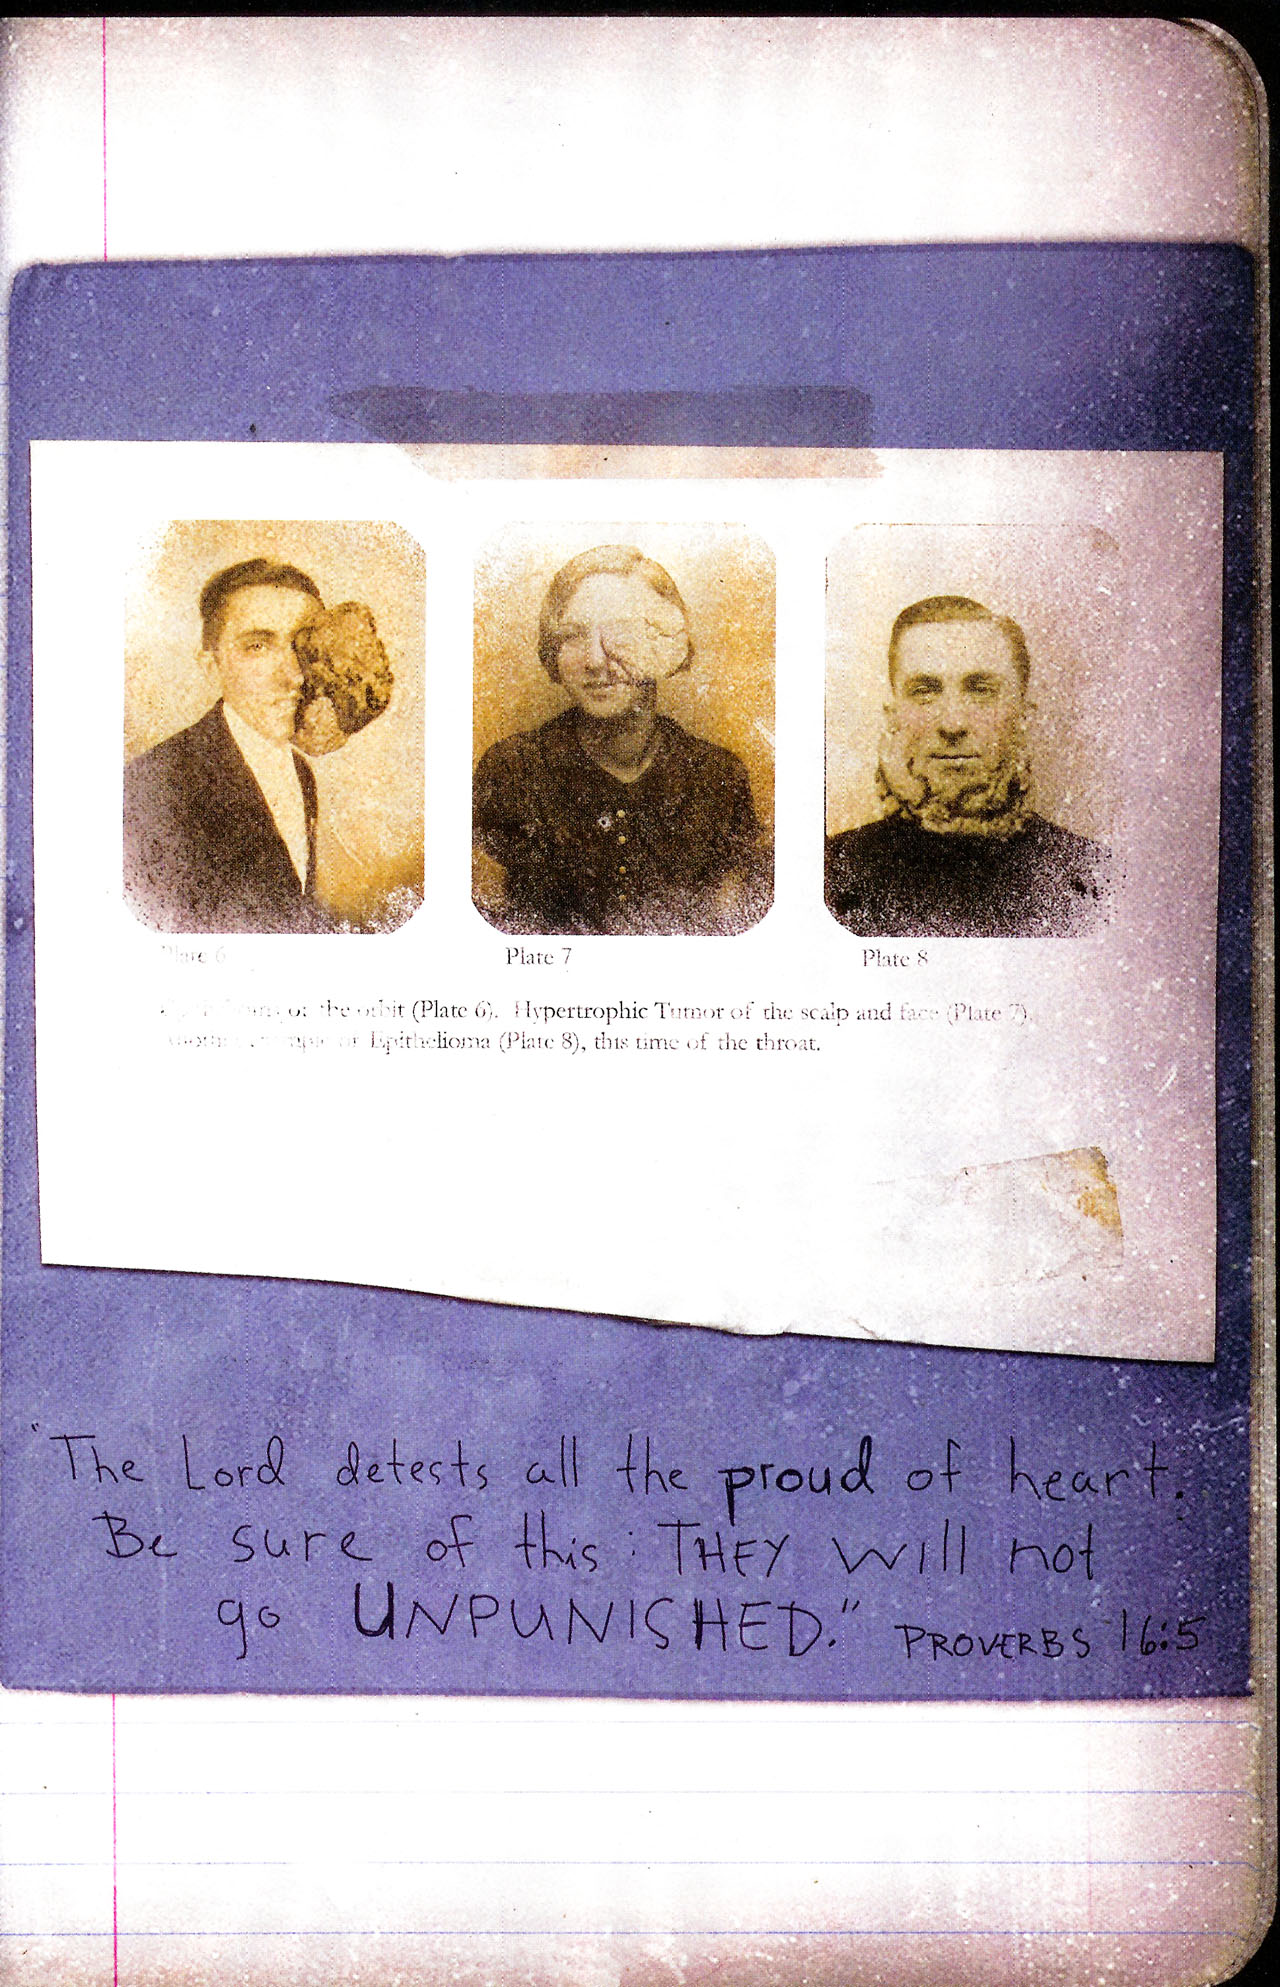 Plate 6
Plate 7
Plate 8
of the orbit (Plate 6). Hypertrophic Tumor of the scalp and face (Plate 7).
Epithelioma (Plate 8), this time of the throat.
"The Lord detests all the proud of heart.
Be sure of this: THEY will not
go UNPUNISHED." PROVERBS 16:5